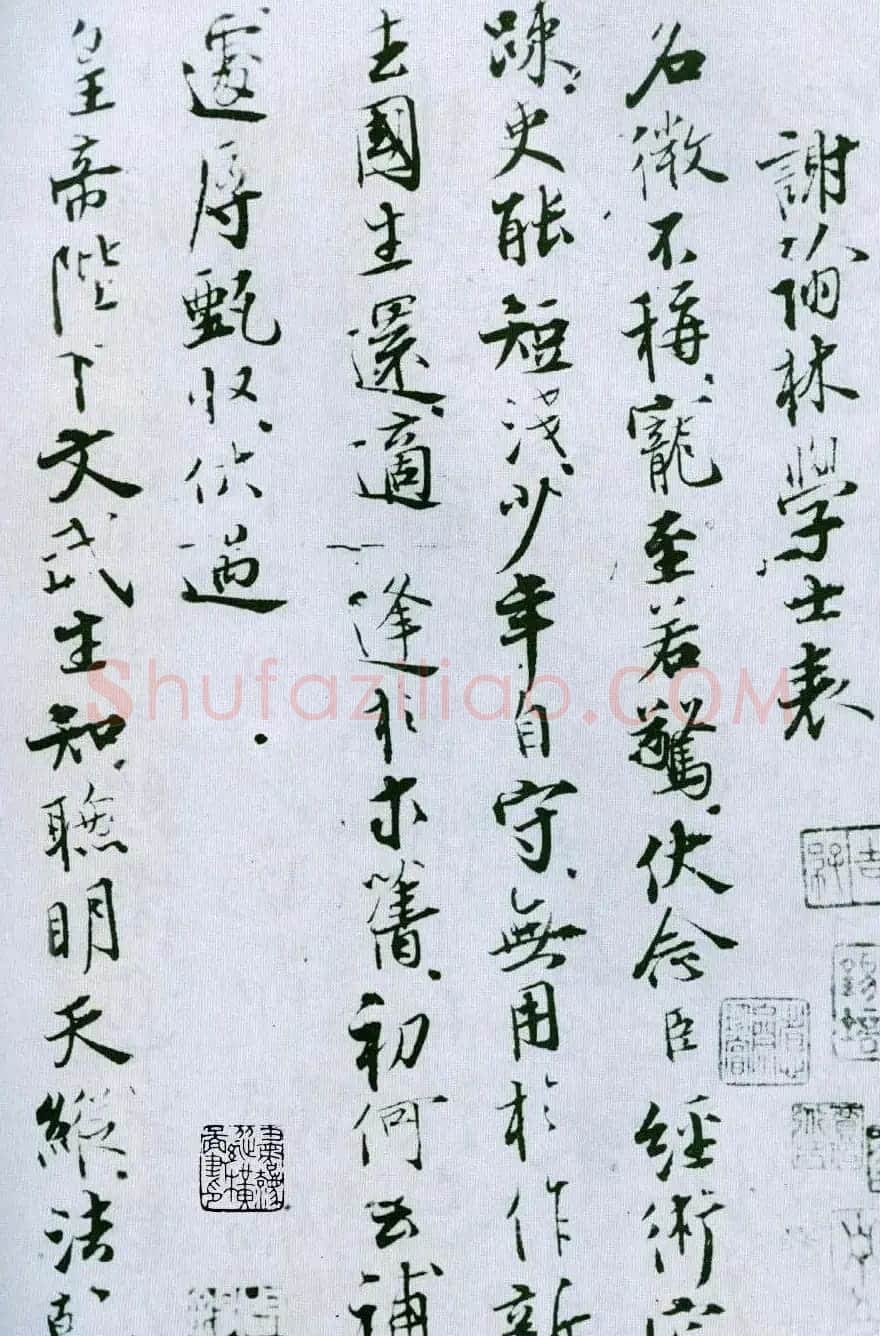 謝翰林學士表
名微不稱寵至若驚伏念臣經術
疎史能短淺少年自守無用於作新
去國生還適逢於求舊初何云補
遽辱甄收伏遇
皇帝陛下文武生知聰明天縱法
Shufaziliao.COM